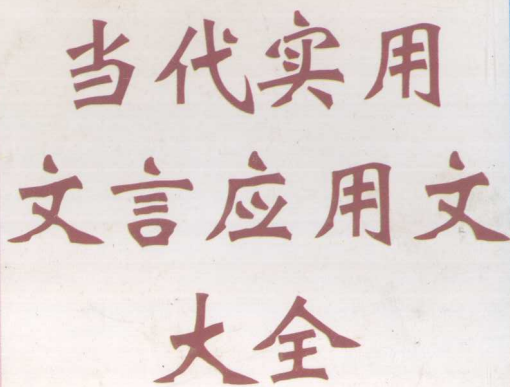 当代实用
文言应用文
大全